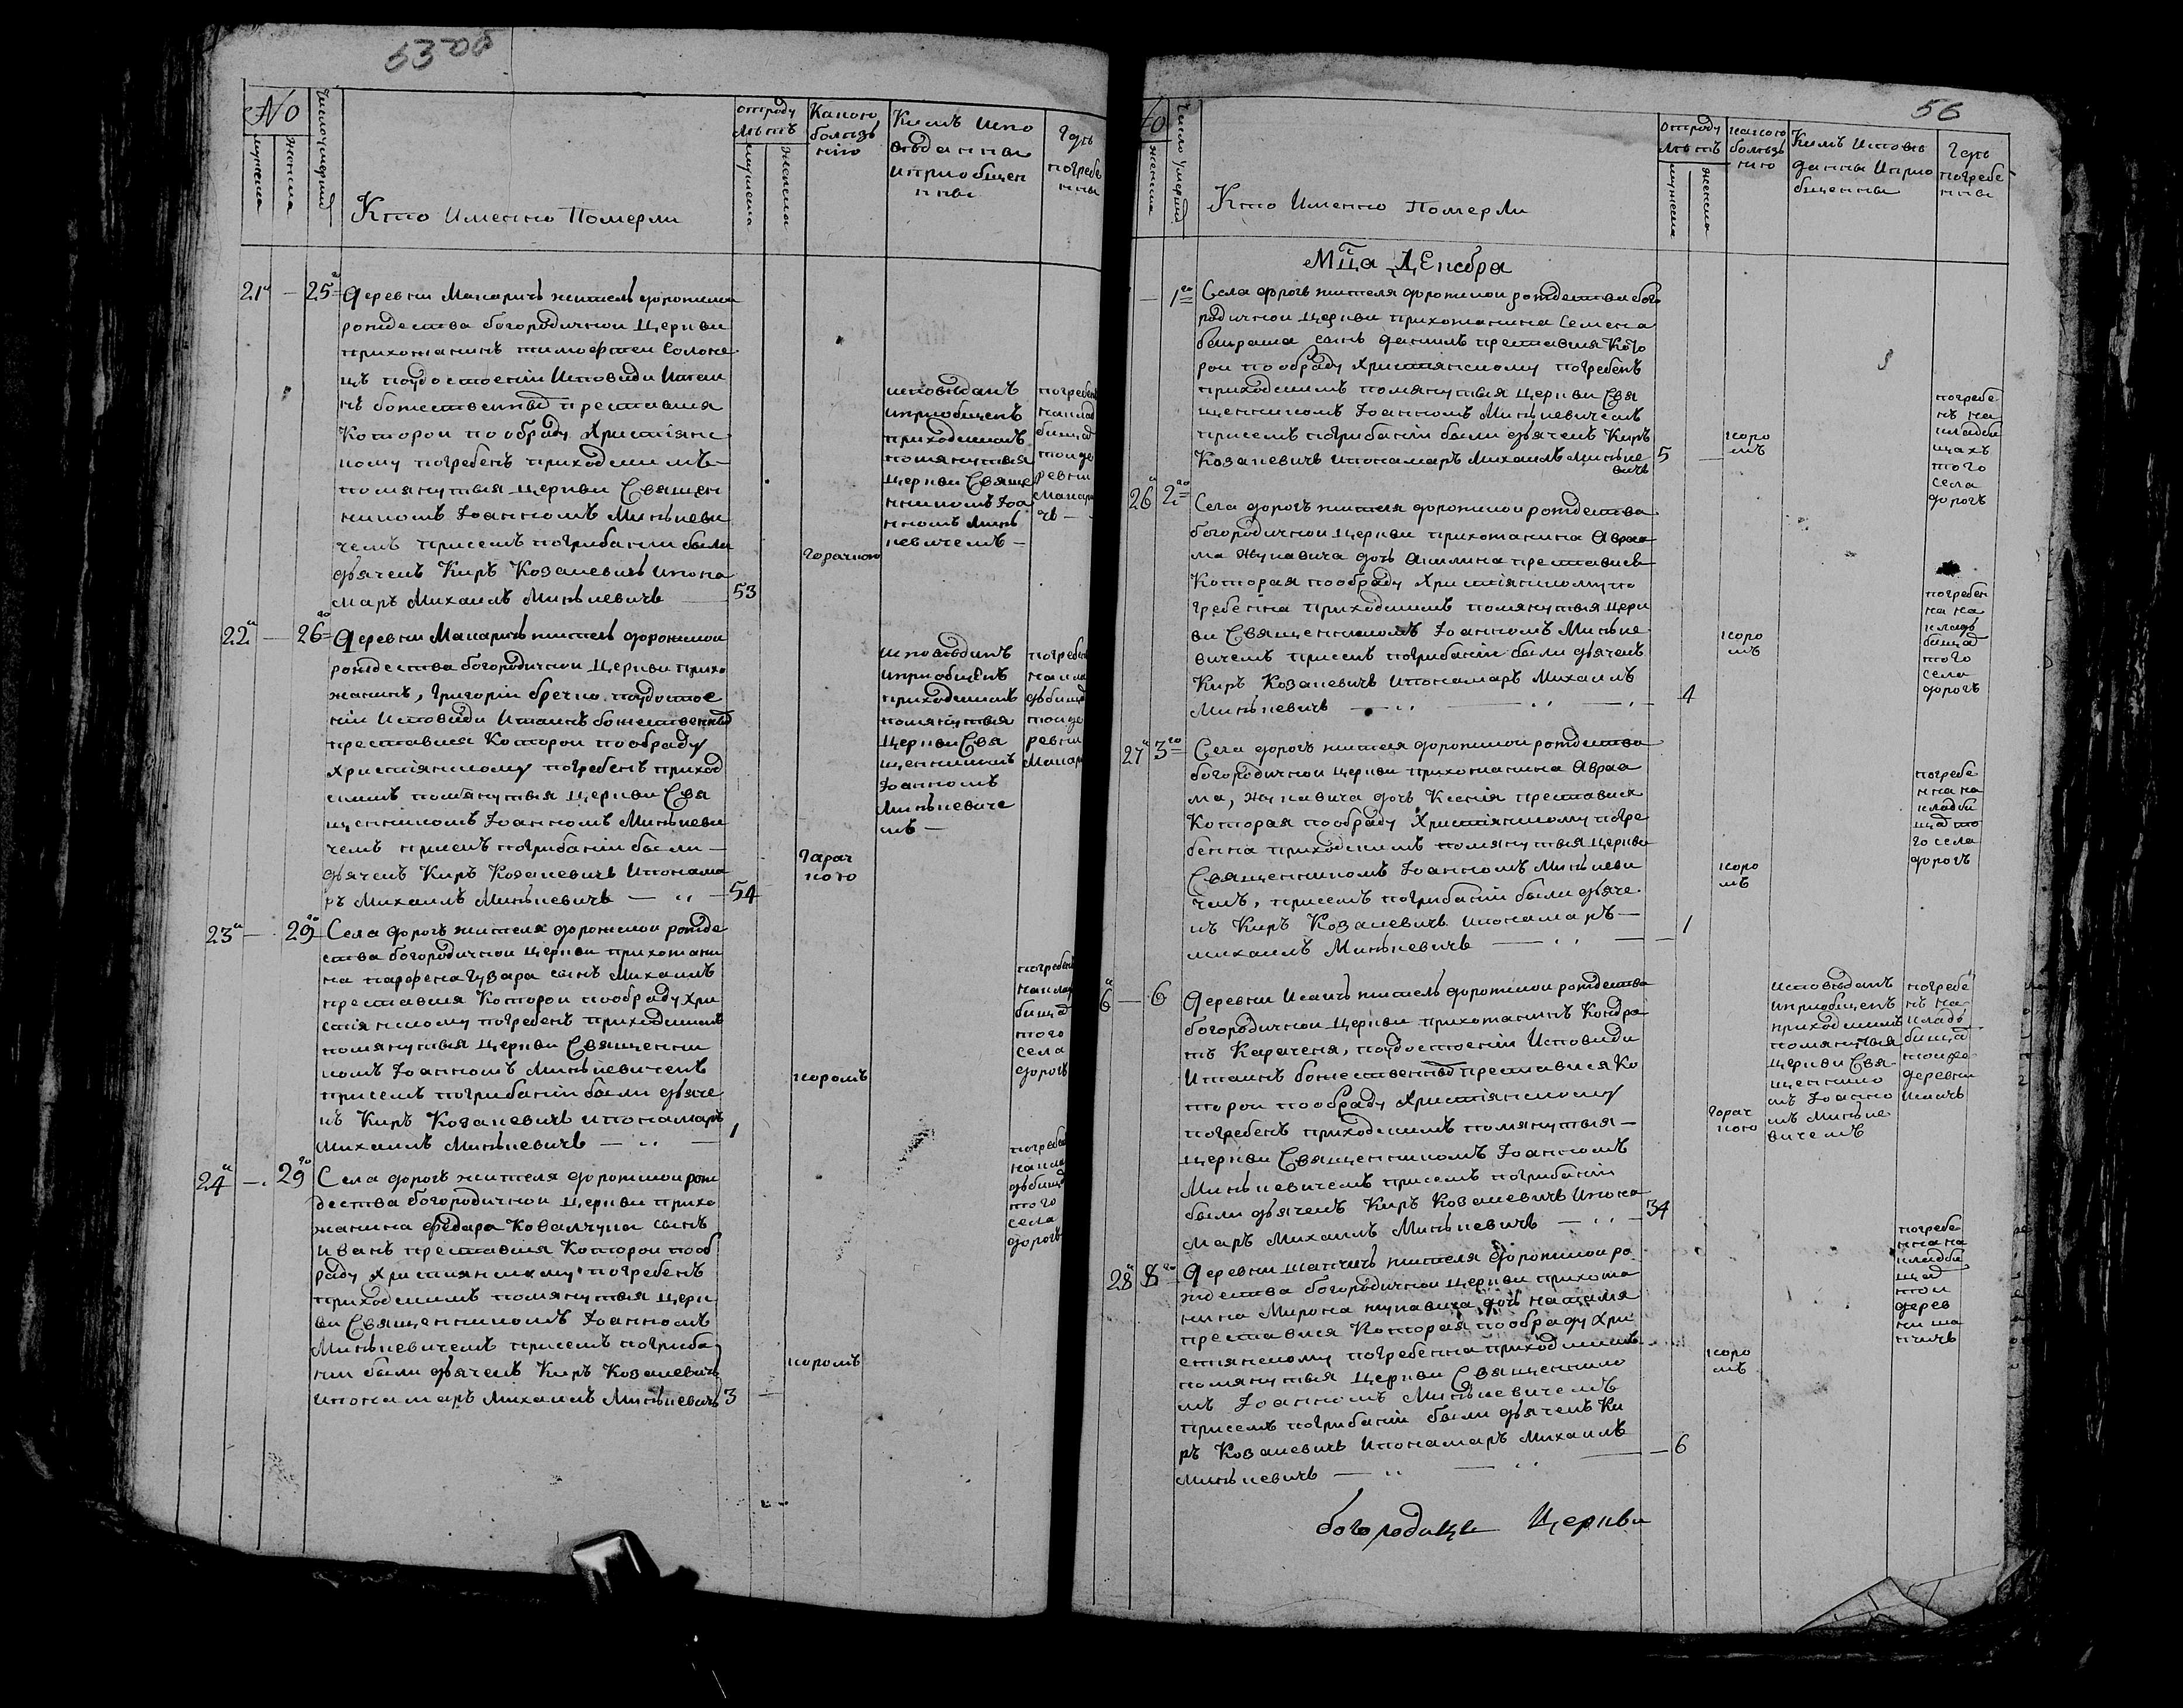 53 об
No
мужеска
женска
число умерших
Кто Именно Померли
отроду
лѣтъ
мужеска
женска
Какою
болѣзь
нію
Кимъ Испо
вѣданны
ипріобщен
нны
Гдѣ
погребе
нны
21
25
Деревни Макаричъ житель дорожинои
рождества богородичнои Церкви
прихожанинъ тимофтеи Солоне
цъ поудостоеніи Исповиди Итаи
нъ божественныхъ преставися
Которои пообраду Христіянс
кому погребенъ приходскимъ
помянутыя Церкви Священ
никомъ Іоанномъ Минькеви
чемъ присемъ погрибаніи были
дьячекъ Киръ Козакевичъ Ипона
маръ Михаилъ Минькевичъ
53
горачкою
исповѣданъ
ипріобщенъ
приходскимъ
помянутыя
Церкви Свяще
нникомъ Іоа
нномъ Минь
кевичемъ
погребенъ
наклад
бищахъ
тоиде
ревни
Макари
чъ
22
26
Деревни Макаричъ житель дорожинои
рождества богородичнои Церкви прихо
жанинъ, Григоріи бречко поудостое
ніи Исповиди Итаинъ божественныхъ
преставися Которои пообраду
Христіянскому погребенъ приход
скимъ помянутыя Церкви Свя
щенникомъ Іоанномъ Минькеви
чемъ присемъ погрибаніи были
дьячекъ Киръ Козакевичъ Ипонама
ръ Михаилъ Минькевичъ
54
Гарач
кою
Исповѣданъ
Ипріобщенъ
приходскимъ
помянутыя
Церкви Свя
щенникомъ
Іоанномъ
Минькевиче
мъ
погребен
накла
дьбищах
тоиде
ревни
Макари
23
29
Села дорогъ жителя дорожинои рожде
ства богородичнои Церкви прихожани
на парфена Гузара сынъ Михаилъ
преставися Которои пообраду Хри
стіянскому погребенъ приходскимъ
помянутыя Церкви Священни
комъ Іоанномъ Минькевичемъ
присемъ погрибаніи были дьяче
къ Киръ Козакевичъ ипонамаръ
Михаилъ Минькевичъ
1
коромъ
погребенъ
наклад
бищахъ
того
села
дорогъ
24
29
Села дорогъ жителя дорожинои рож
дества богородичнои Церкви прихо
жанина федора Ковалчука сынъ
Иванъ преставися Которои пооб
раду Християнскому погребенъ
приходскимъ помянутыя Церк
ви Священникомъ Іоанномъ
Минькевичемъ присемъ погриба
нии были дьячекъ Киръ Козакевичъ
ипонамаръ Михаилъ Минькевичъ
3
коромъ
погребен
накла
дьбищах
того
села
дорогъ
56
No
женска
число умерших
Кто Именно Померли
отроду
лѣтъ
мужеска
женска
какою
болѣзь
нію
Кимъ Исповѣ
данны Иприо
бщенны
Гдѣ
погребе
нны
Мца Декабра
1
Села дорогъ жителя дорожинои рождества бого
родичнои Церкви прихожанина Семена
сынъ данилъ преставися Кото
рои пообраду Христіянскому погребенъ
приходскимъ помянутыя Церкви Свя
щенникомъ Іоанномъ Минькевичемъ
присемъ погрибаніи были дьячекъ Киръ
Козакевичъ ипонамаръ Михаилъ Минькѣ
вичъ
5
коро
мъ
погребе
нъ на
кладби
щахъ
того
села
дорогъ
26
2
Села дорогъ жителя дорожинои рождества
богородичнои Церкви прихожанина Авраа
ма Жукавича дочъ Акилина преставися
Которая пообраду Христіянскому по
гребенна приходскимъ помянутыя Церк
ви Священникомъ Іоанномъ Минькѣ
вичемъ присемъ погрибаніи были дьячекъ
Киръ Козакевичъ Ипонамаръ Михаилъ
Минькевичъ
4
коро
мъ
погребен
на на
кладь
бищах
того
села
дорогъ
27
3
Села дорогъ жителя дорожинои рождества
богородичнои Церкви прихожанина Авраа
ма, Жукавича дочъ Ксенія преставися
Которая пообраду Христіянскому погре
бенна приходскимъ помянутыя Церкви
Священникомъ Іоанномъ Минькеви
чемъ, присемъ погрибаніи были дьяче
къ Киръ Козакевичъ ипонамаръ
михаилъ Минькевичъ
1
коро
мъ
погребе
нна на
кладби
щахъ то
го села
дорогъ
6
Деревни Исаичъ житель дорожинои рождества
богородичнои Церкви прихожанинъ Кондра
тъ Караченя, поудостоеніи Исповиди
Итаинъ божественныхъ преставися Ко
торои пообраду Христіянскому
погребенъ приходскимъ помянутыя
Церкви Священникомъ Іоанномъ
Минькевичемъ присемъ погрибаніи
были дьячекъ Киръ Козакевичъ Ипона
маръ Михаилъ Минькевичъ
34
Горач
кою
исповѣданъ
ипріобщенъ
приходскимъ
помянутыя
Церкви Свя
щеннико
мъ Іоанно
мъ Минькѣ
вичемъ
погребе
нъ на
кладь
бищах
тоиже
деревни
Исаичъ
28
8
Деревни шапчичъ жителя дорожинои ро
ждества богородичнои Церкви прихожа
нина Мирона жукавича дочъ наталя
преставися Которая пообраду Хри
стиянскому погребенна приходскимъ
помянутыя Церкви Священнико
мъ Іоанномъ Минькевичемъ
присемъ погрибаніи были дьячекъ Ки
ръ Козакевичъ Ипонамаръ Михаилъ
Минькевичъ
6
коро
мъ
погребе
нна на
кладби
щах
тои
дерев
ни ша
пчичъ
богородицы Церкви